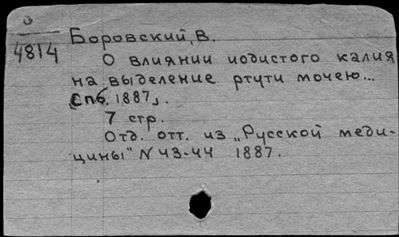 Боровский, В.
4814
О влиянии иодистого калия
на выделение ртути мочею...
[Спб. 1887].
7 стр.
Отд. отт. из „Русской меди-
цины" N 43-44 1887.